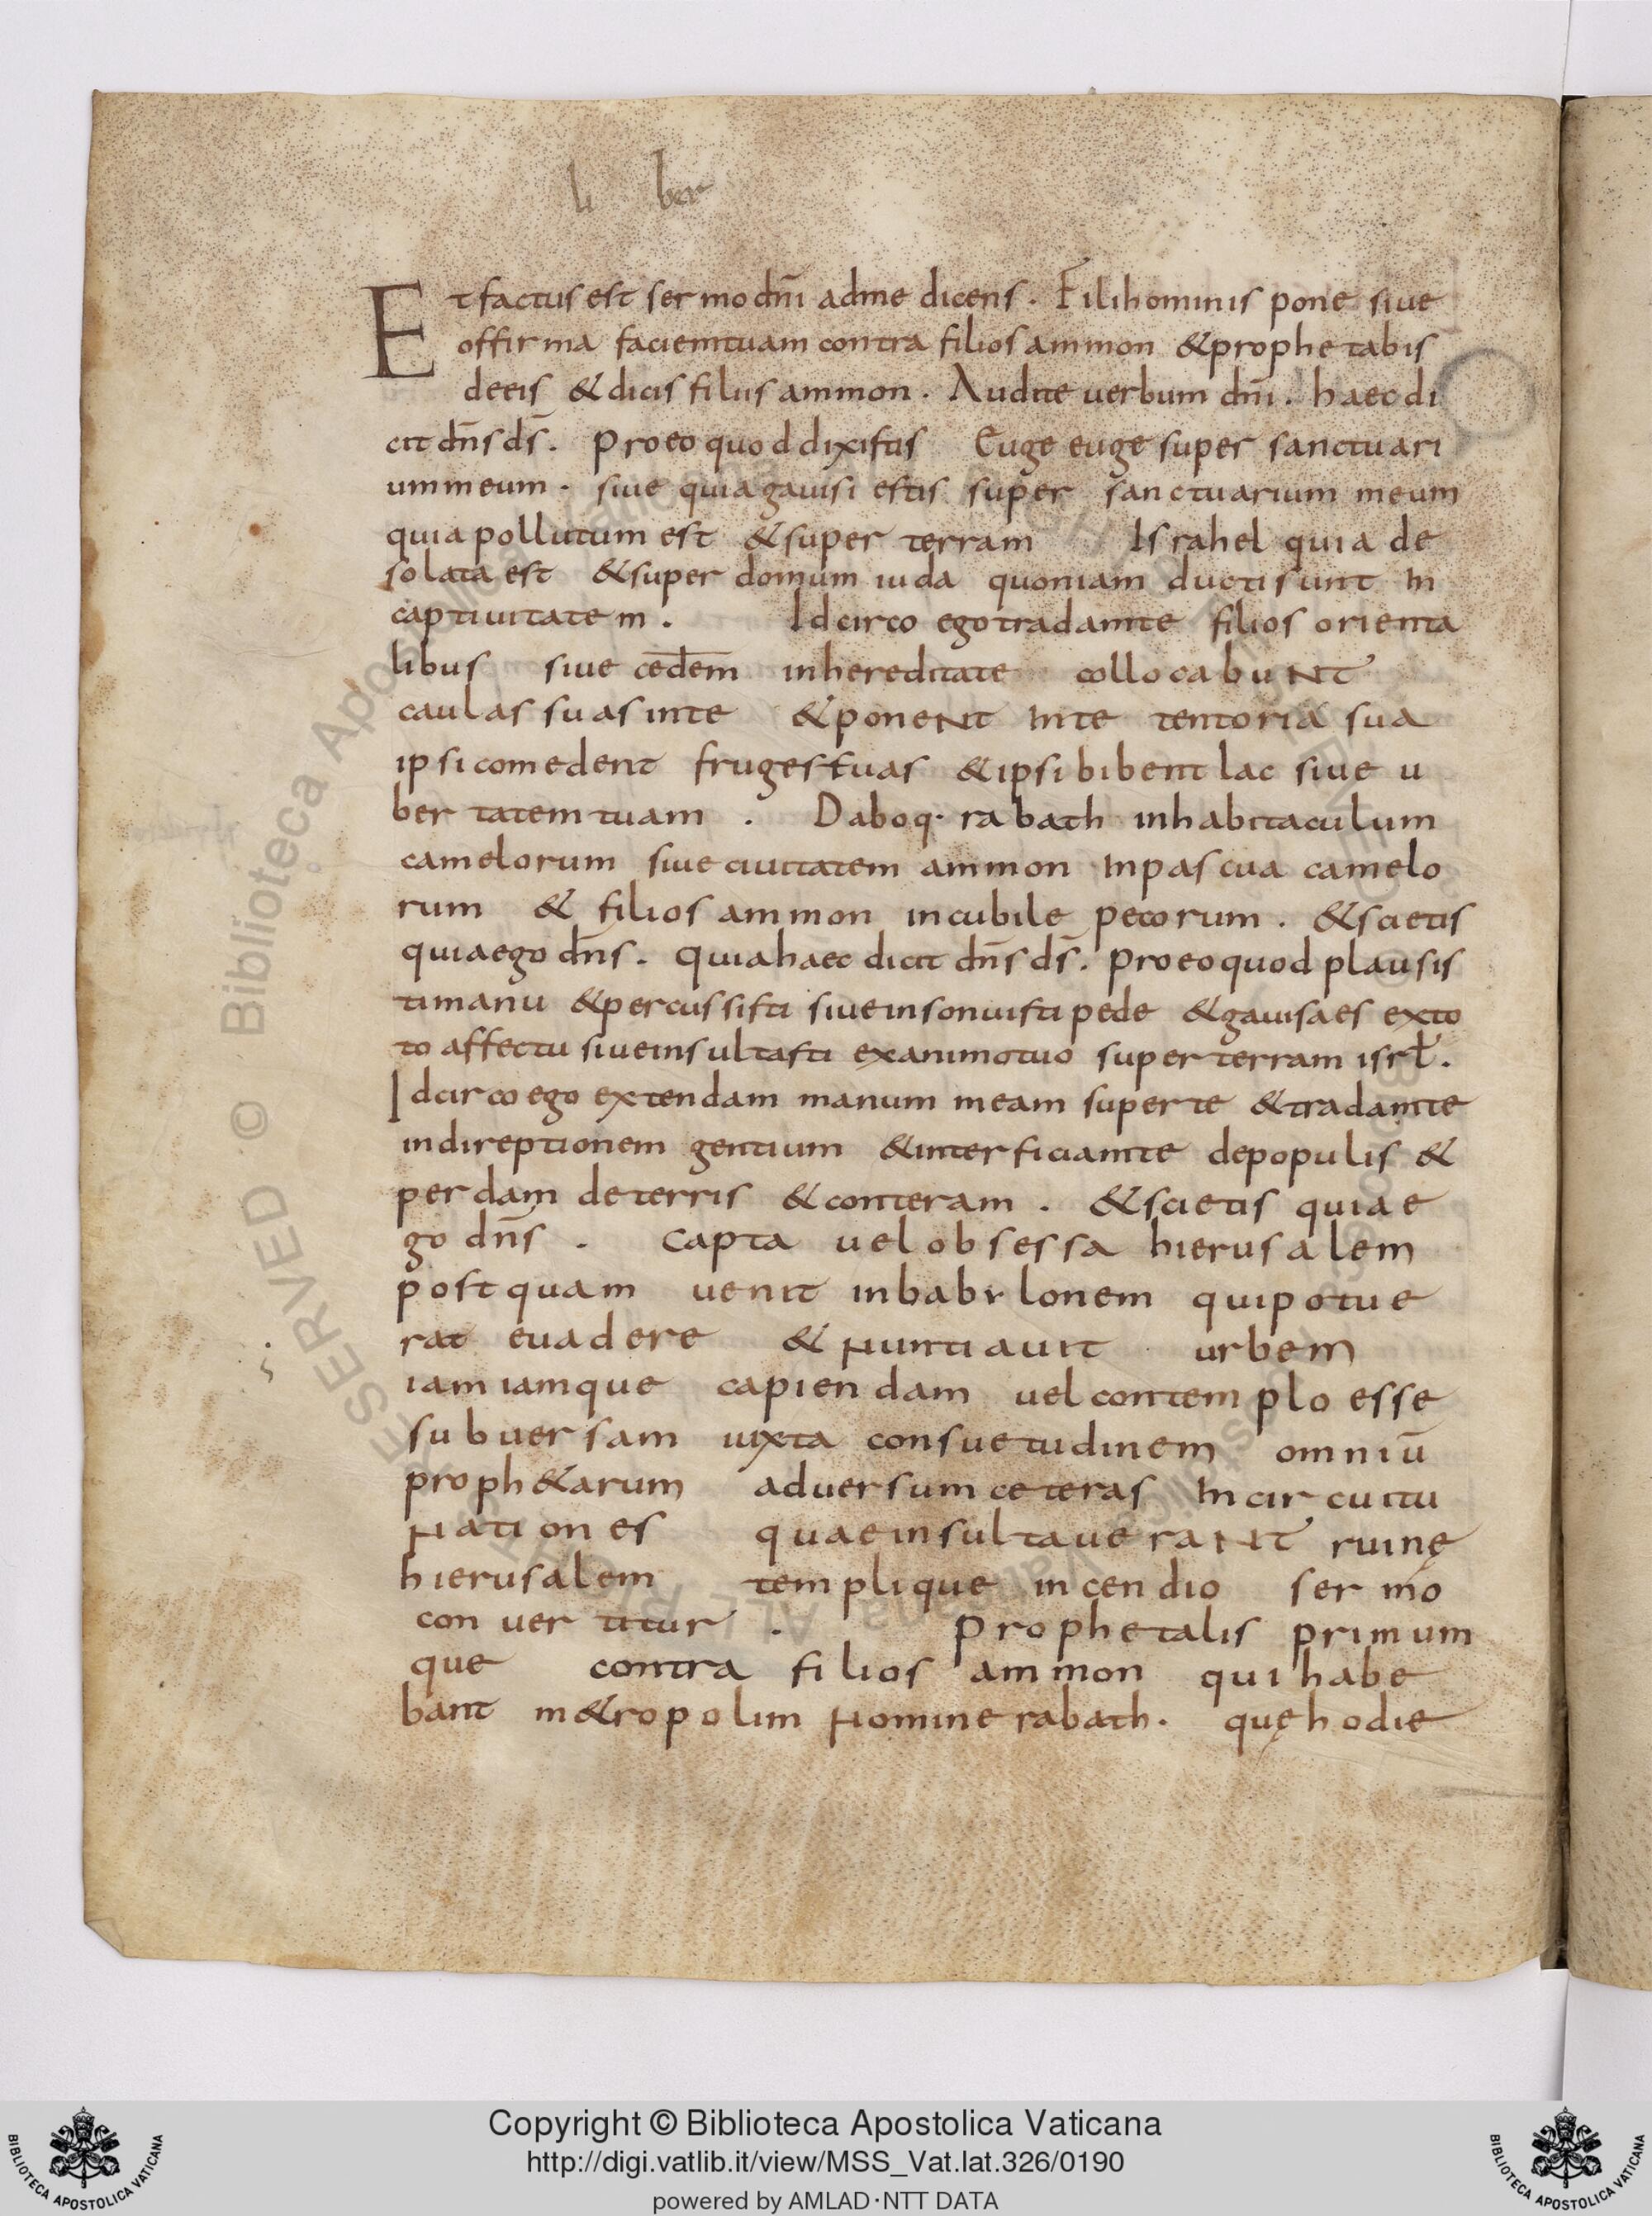 li ber
Et factus est sermo dn̄i adme dicens. Filihominis pone siue
offirma faciemtuam contra filios ammon &prophetabis
deeis &dicis filiis ammon. Audite uerbum dn̄i. haec di
cit dn̄s ds̄. Proeo quod dixistis Euge euge super sanctuari
um meum. siue quia gauisi estis super sanctuarium meum
quia pollutum est &super terram Israhel quia de
solata est &super domum iuda quoniam ducti sunt in
captiuitatem. Idcirco ego tradamte filios orienta
libus siue cēdēm inhereditate collocabuNt
caulas suas inte &poneNt inte tentoria sua
ipsi comedent fruges tuas &ipsi bibent lac siue u
bertatem tuam. Daboq· rabath inhabitaculum
camelorum siue ciuitatem ammon inpascua camelo
rum & filios ammon incubile pecorum. &scietis
quiaego dn̄s. Quiahaec dicit dn̄s ds̄. Proeoquod plausis
ti manu &percussisti siueinsonuisti pede &gauisaes exto
to affectu siueinsultasti exanimotuo super terram isrł.
Idcirco ego extendam manum meam superte &tradamte
indireptionem gentium &interficiamte depopulis &
perdam deterris &conteram. &scietis quiae
go dn̄s. Capta uel obsessa hierusalem
postquam uenit inbabylonem quipotue
rat euadere & Nuntiauit urbem
iam iamque capiendam uel contemplo esse
subuersam iuxta consuetudinem omniū
proph&arum aduersum ceteras incircuitu
Nationes quaeinsultaueraNt ruinę
hierusalem templique incendio sermo
conuertitur. Prophetalis primum
que contra filios ammon quihabe
bant m&ropolim Nomine rabath. quęhodie
Copyright © Biblioteca Apostolica Vaticana
http://digi.vatlib.it/view/MSS_Vat.lat.326/0190
powered by AMLAD·NTT DATA